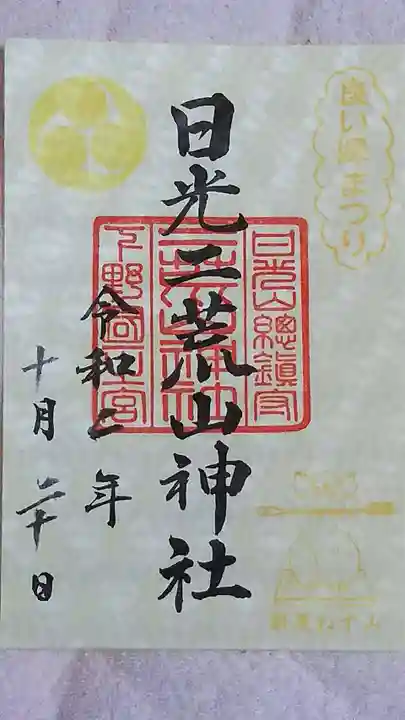 良い縁まつり
日光二荒山神社
日光山總鎮守
二荒山神社
下野國一宮
令和二年
十月二十日